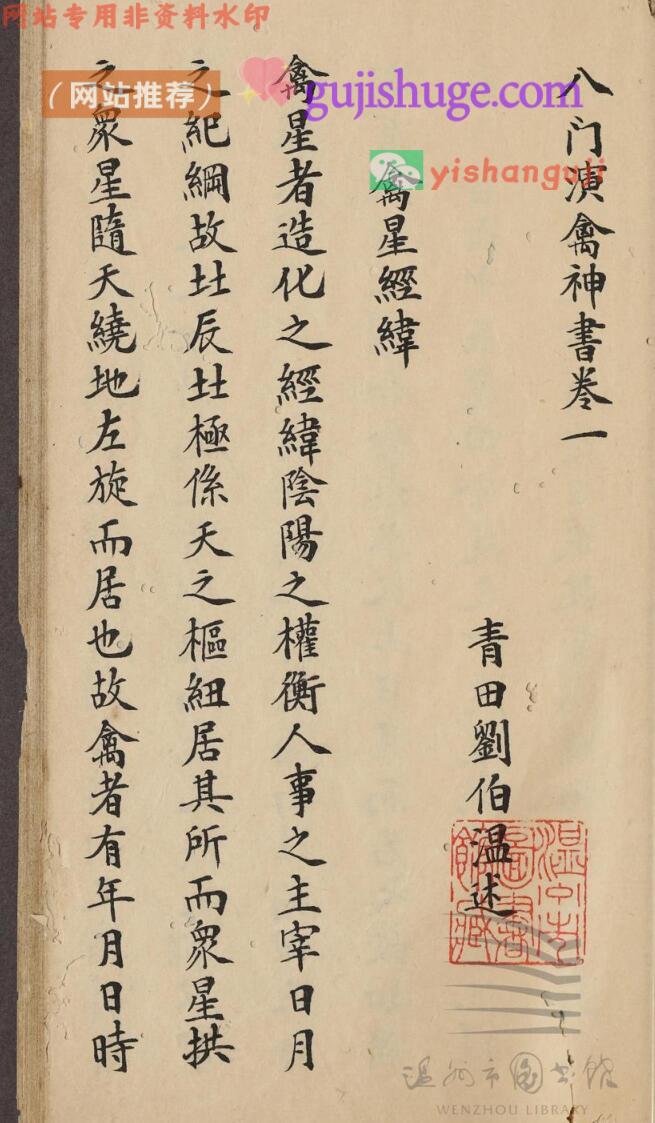 网站专用非资料水印
（网站推荐）
gujishuge.com
yishanguji
八门演禽神書卷一
青田劉伯温述
禽星經緯
禽星者造化之經緯陰陽之權衡人事之主宰日月
之紀綱故北辰北極係天之樞紐居其所而眾星拱
之眾星隨天繞地左旋而居也故禽者有年月日時
温州市圖書館藏
温州市图书馆
WENZHOU LIBRARY